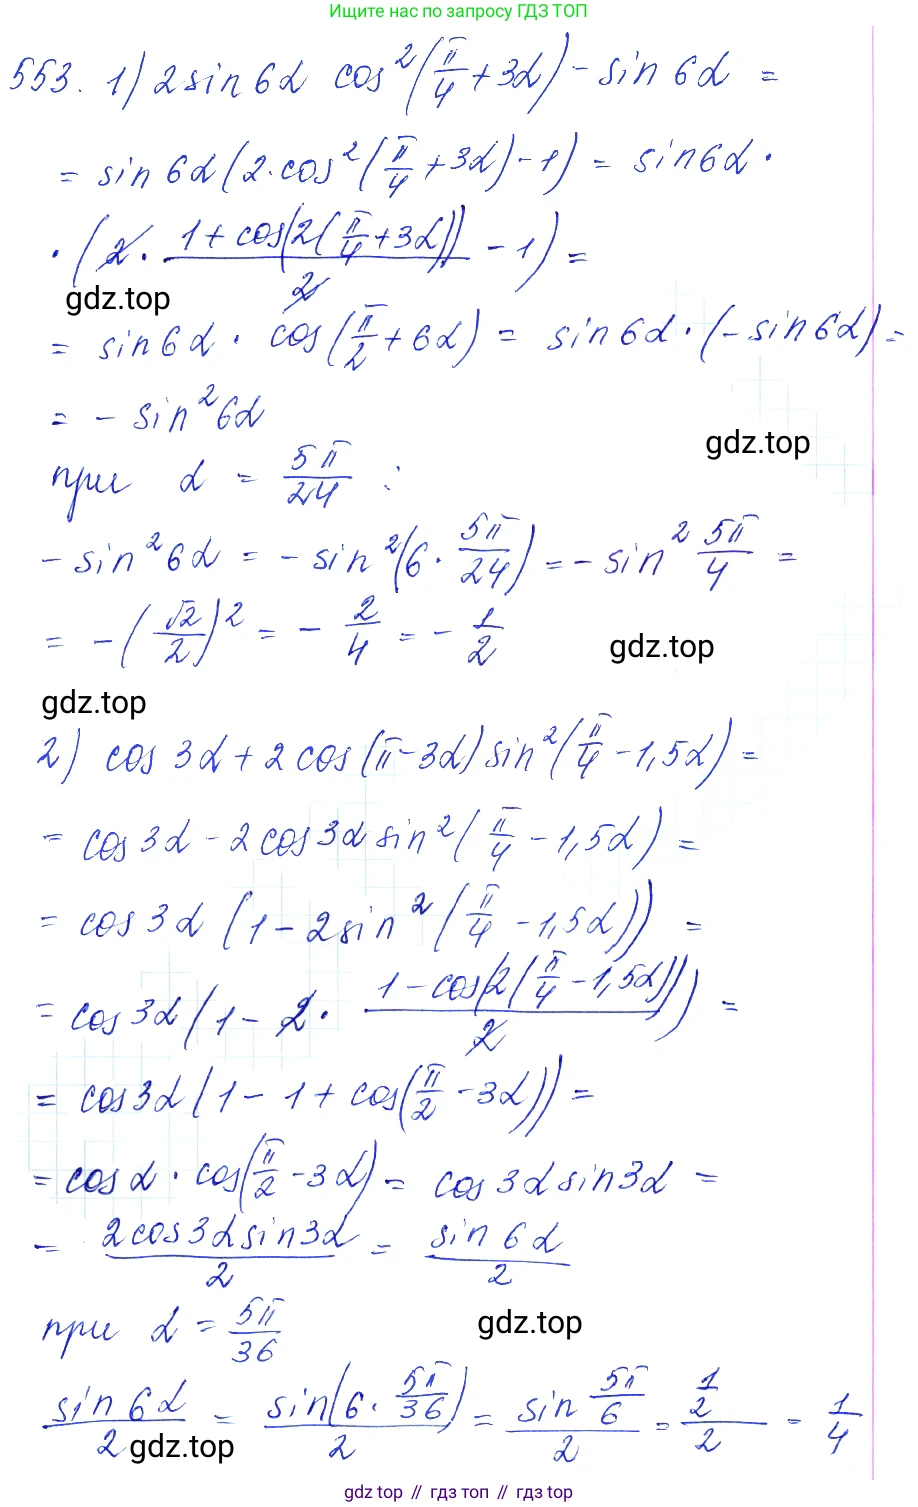 Ищите нас по запросу ГДЗ ТОП
553. 1) 2 sin 6α cos²(π/4 + 3α) - sin 6α =
= sin 6α (2·cos²(π/4 + 3α) - 1) = sin 6α ·
· (2 · (1 + cos(2(π/4 + 3α)))/2 - 1) =
gdz.top
= sin 6α · cos(π/2 + 6α) = sin 6α · (- sin 6α) =
= - sin² 6α
gdz.top
при α = 5π/24 :
- sin² 6α = - sin²(6 · 5π/24) = - sin² 5π/4 =
= - (√2/2)² = - 2/4 = - 1/2
gdz.top
gdz.top
2) cos 3α + 2 cos(π - 3α) sin²(π/4 - 1,5α) =
= cos 3α - 2 cos 3α sin²(π/4 - 1,5α) =
= cos 3α (1 - 2 sin²(π/4 - 1,5α)) =
= cos 3α (1 - 2 · (1 - cos(2(π/4 - 1,5α)))/2) =
= cos 3α (1 - 1 + cos(π/2 - 3α)) =
= cos α · cos(π/2 - 3α) = cos 3α sin 3α =
= 2 cos 3α sin 3α/2 = sin 6α/2
при α = 5π/36
gdz.top
sin 6α/2 = sin(6 · 5π/36)/2 = sin 5π/6/2 = 1/2/2 = 1/4
gdz.top
gdz top // гдз топ // gdz top